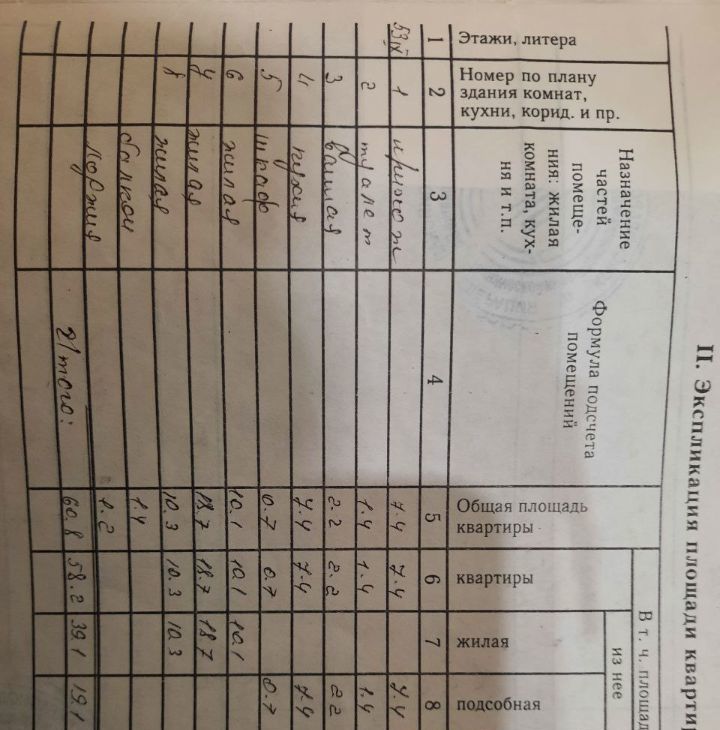 II. Экспликация площади кварти
Этажи, литера
Номер по плану
здания комнат,
кухни, корид. и пр.
Назначение
частей
помеще-
ния: жилая
комната, кух-
ня и т.п.
Формула подсчета
помещений
Общая площадь
квартиры
В т. ч. площад
квартиры
из нее
жилая
подсобная
1 2 3 4 5 6 7 8
1 7.4 7.4 7.4
2 туалет 1.4 1.4 1.4
3 ванная 2.2 2.2 2.2
4 кухня 7.4 7.4 7.4
5 шкаф 0.7 0.7 0.7
6 жилая 10.1 10.1 10.1
7 жилая 18.7 18.7 18.7
8 жилая 10.3 10.3 10.3
балкон 1.4
лоджия 1.2
Итого: 60.8 58.2 39.1 19.1